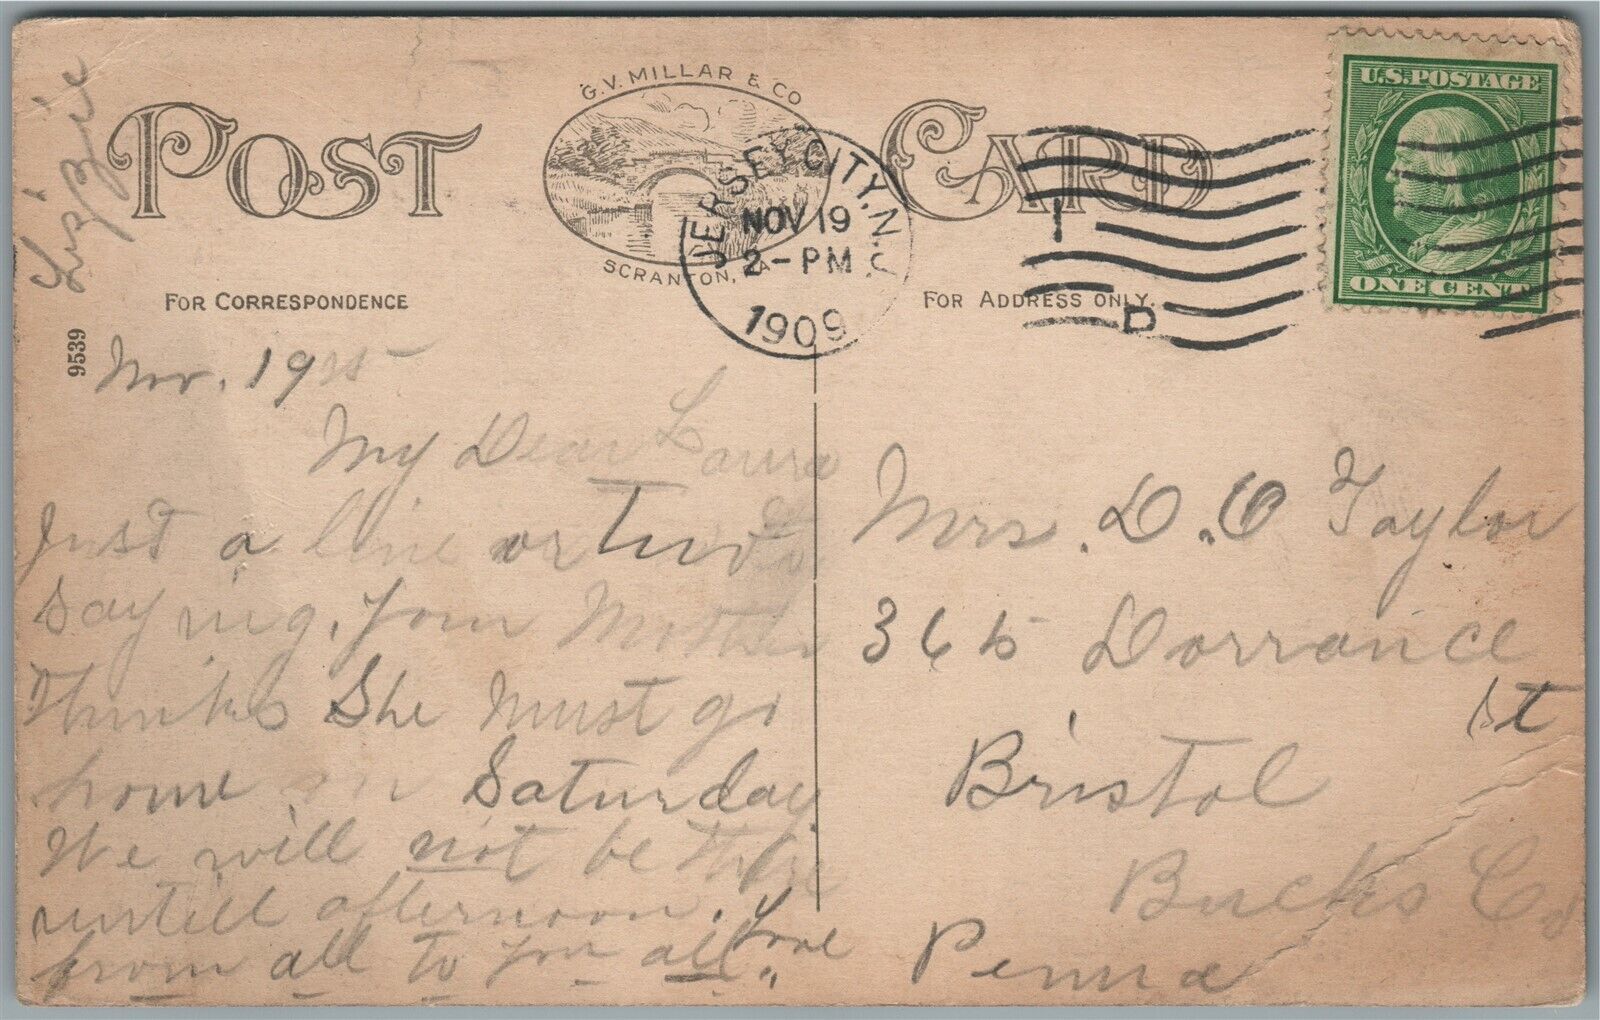 POST CARD
G.V. MILLAR & CO
SCRANTON, PA
JERSEY CITY, N.J.
NOV 19
2-PM
1909
1
D
U.S. POSTAGE
ONE CENT
FOR CORRESPONDENCE
FOR ADDRESS ONLY.
9539
Lizzie
Nov. 19
My Dear Laura
Just a line or two
saying, your Mother
Thinks She must go
home on Saturday
We will not be there
untill afternoon. Love
from all to you all.
Mrs. D. O Taylor
365 Dorrance
St
Bristol
Bucks Co
Penna